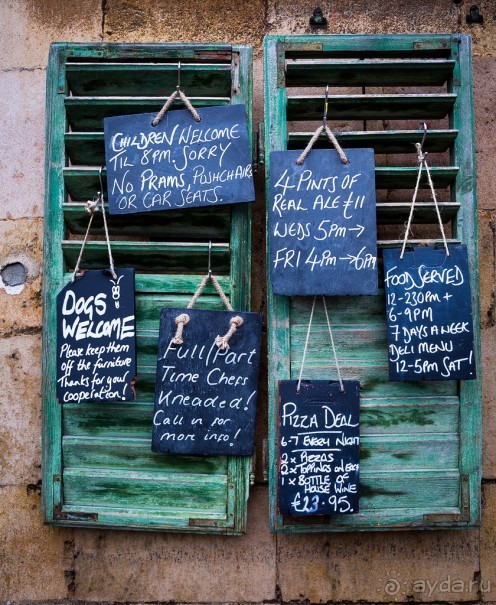 CHILDREN WELCOME
TIL 8PM. SORRY
NO PRAMS, PUSHCHAIRS
OR CAR SEATS.
4 PINTS OF
REAL ALE £11
WEDS 5PM→
FRI 4PM →6PM
FOOD SERVED
12-230PM +
6-9PM
7 DAYS A WEEK
DELI MENU
12-5PM SAT!
DOGS
WELCOME
Please keep them
off the furniture
Thanks for your
cooperation!
Full/Part
Time Chefs
Kneaded!
Call in for
more info!
PIZZA DEAL
6-7 EVERY NIGHT
2 x PIZZAS
2 x TOPPINGS ON EACH
1 x BOTTLE OF
HOUSE WINE
£23.95.
ayda.ru